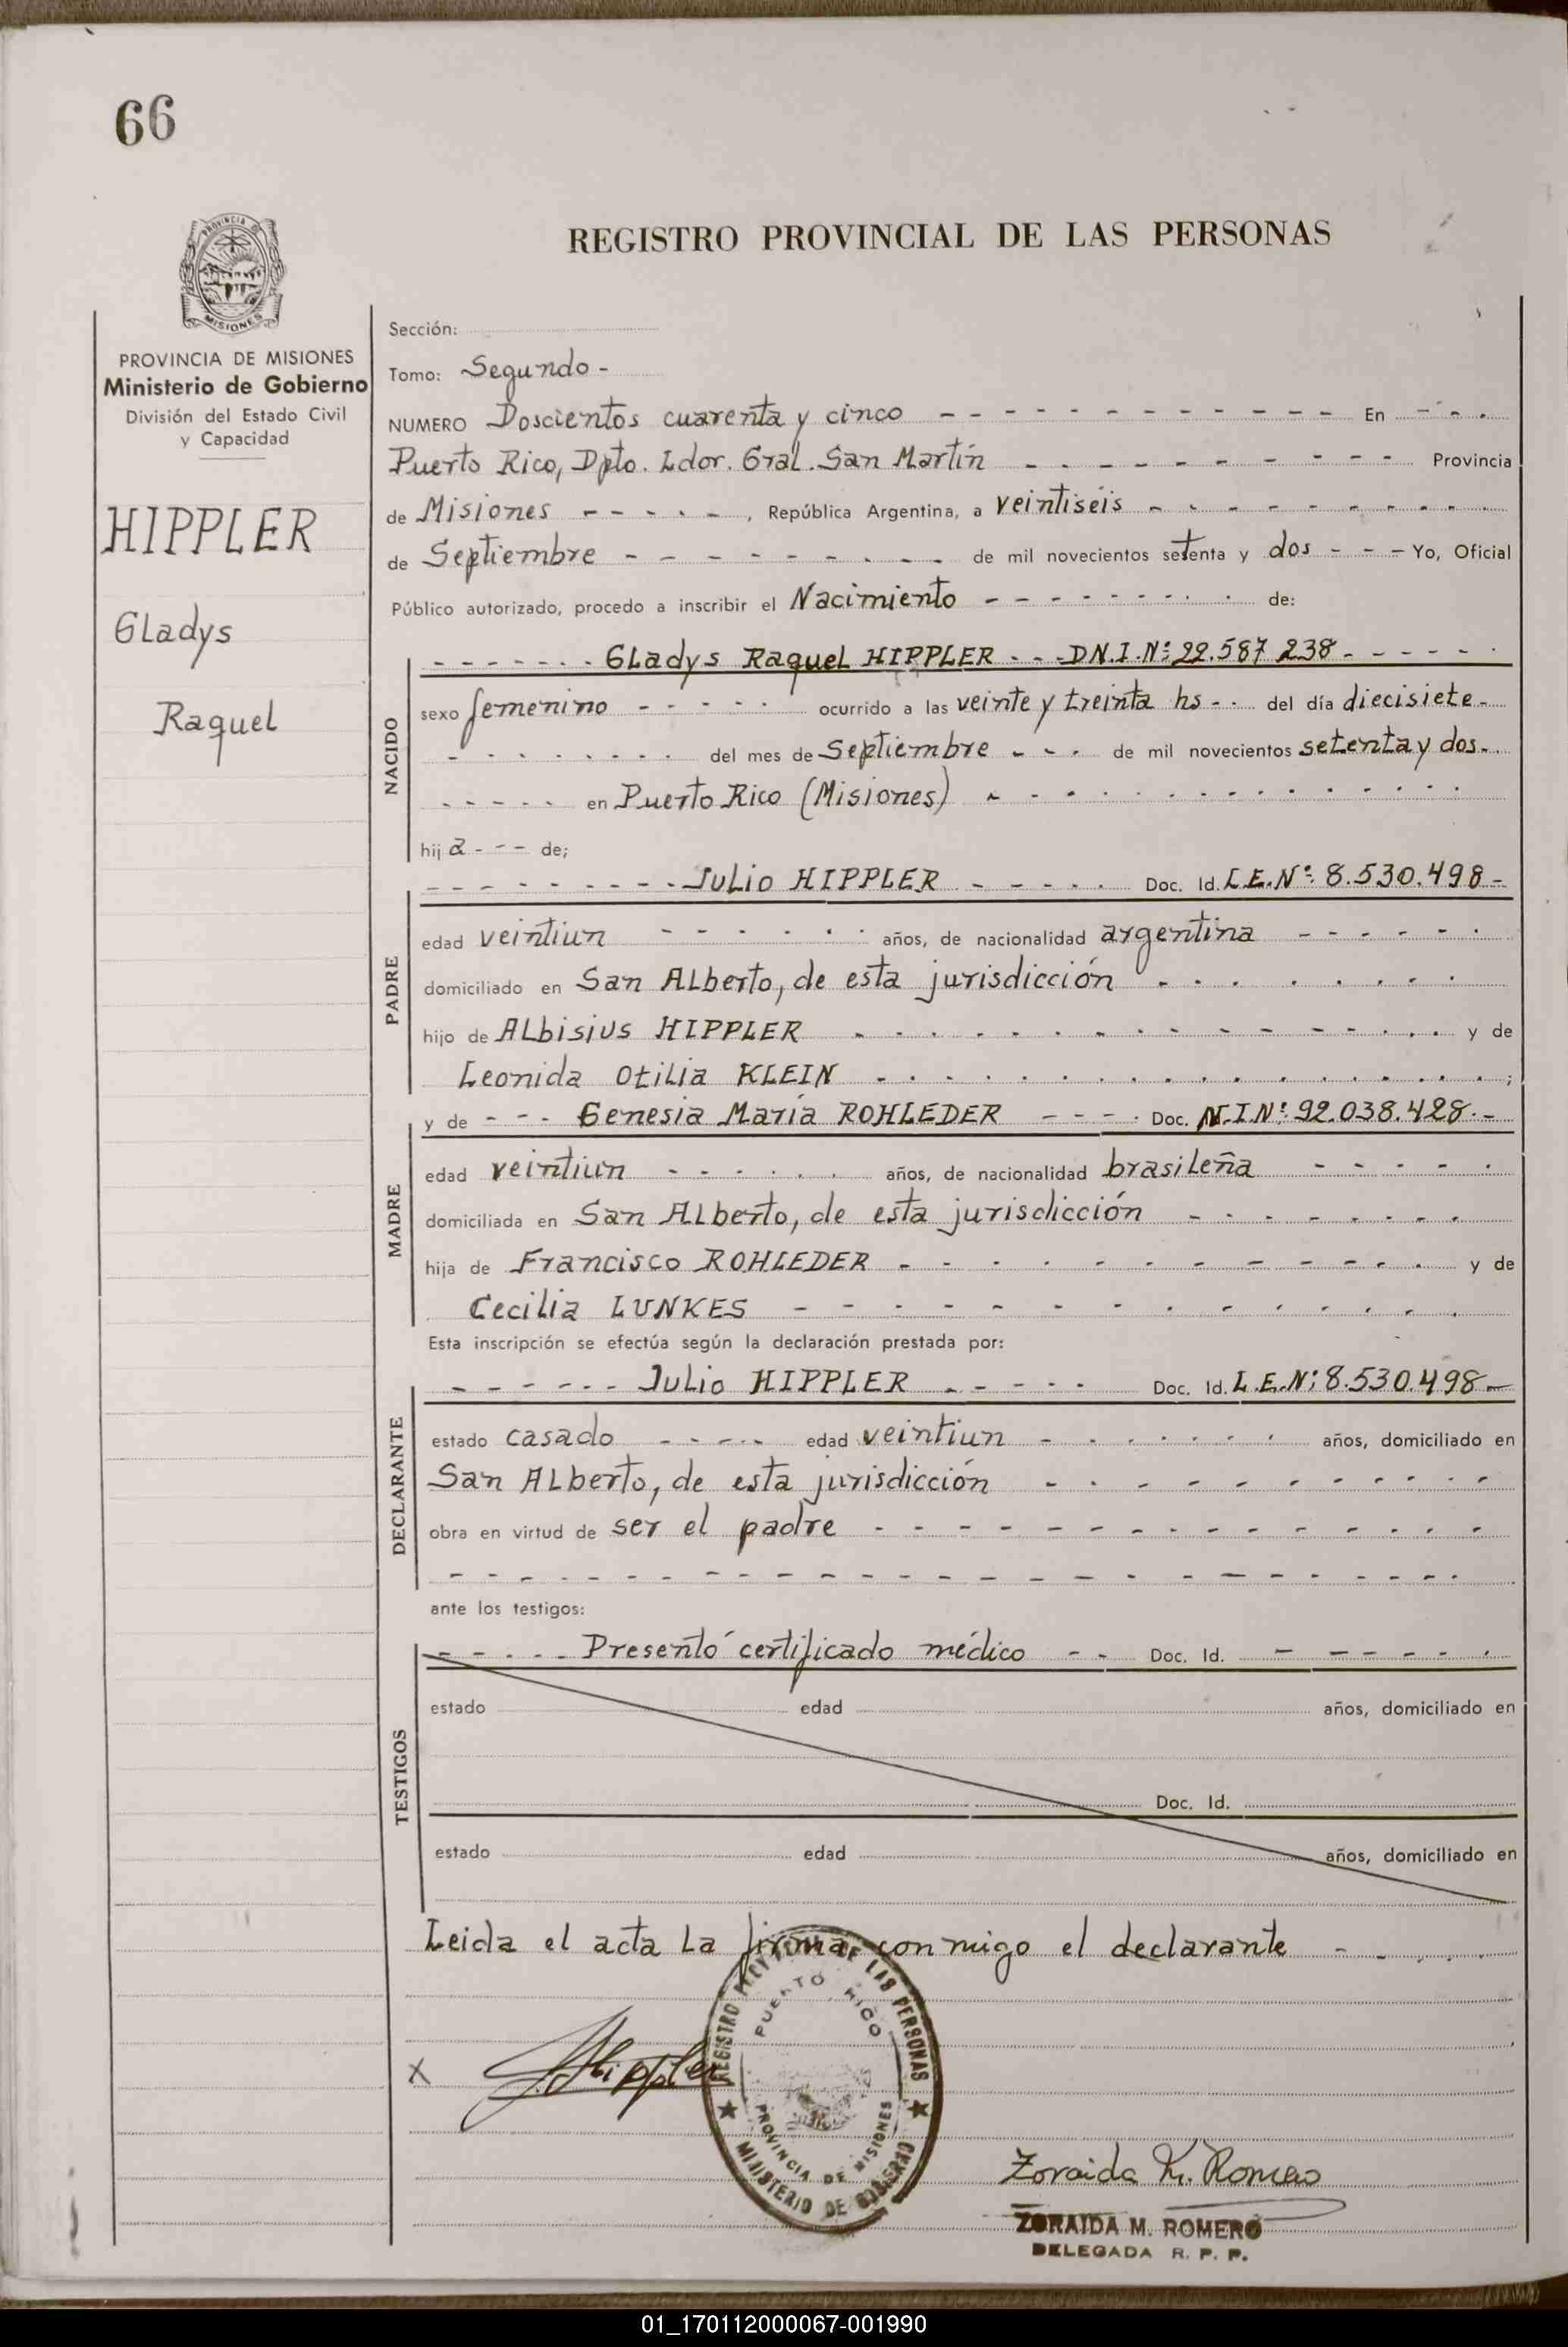 66
REGISTRO PROVINCIAL DE LAS PERSONAS
MISIONES
PROVINCIA DE MISIONES
Ministerio de Gobierno
División del Estado Civil
y Capacidad
HIPPLER
Gladys
Raquel
Sección:
Tomo: Segundo -
NUMERO Doscientos cuarenta y cinco - - - - - - - - - - - - - En - - -
Puerto Rico, Dpto. Ldor. Gral. San Martín - - - - - - - - - - Provincia
de Misiones - - - - - , República Argentina, a veintiséis - - - - - - - - - -
de Septiembre - - - - - - - - - de mil novecientos setenta y dos - - - Yo, Oficial
Público autorizado, procedo a inscribir el Nacimiento - - - - - - - - - de:
- - - - - - - Gladys Raquel HIPPLER - - - D.N.I.Nº: 22.587.238 - - - - - -
NACIDO
sexo femenino - - - - - ocurrido a las veinte y treinta hs - - del día diecisiete -
- - - - - - - del mes de Septiembre - - - de mil novecientos setenta y dos -
- - - - - en Puerto Rico (Misiones) - - - - - - - - - - - -
hij a - - - de;
- - - - - - - - - Julio HIPPLER - - - - - Doc. Id. L.E.Nº: 8.530.498 -
PADRE
edad veintiun - - - - - - años, de nacionalidad argentina - - - - - -
domiciliado en San Alberto, de esta jurisdicción - - - - - - - -
hijo de Albisius HIPPLER - - - - - - - - - - - - - - y de
Leonida Otilia KLEIN - - - - - - - - - - - - - - ;
y de - - - Genesia María ROHLEDER - - - - Doc. N.I.Nº: 92.038.428. -
MADRE
edad veintiun - - - - - - años, de nacionalidad brasileña - - - - -
domiciliada en San Alberto, de esta jurisdicción - - - - - - - -
hija de Francisco ROHLEDER - - - - - - - - - - - - y de
Cecilia LUNKES - - - - - - - - - - - - -
Esta inscripción se efectúa según la declaración prestada por:
- - - - - - Julio HIPPLER - - - - - Doc. Id. L.E.Nº: 8.530.498 -
DECLARANTE
estado casado - - - - - edad veintiun - - - - - - - - años, domiciliado en
San Alberto, de esta jurisdicción - - - - - - - - - - -
obra en virtud de ser el padre - - - - - - - - - - - - - - -
- - - - - - - - - - - - - - - - - - - - - - - - -
ante los testigos:
- - - - - Presentó certificado médico - - Doc. Id. - - - - - -
TESTIGOS
estado edad años, domiciliado en
Doc. Id.
estado edad años, domiciliado en
Leida el acta la firma conmigo el declarante - - - -
REGISTRO PROVINCIAL DE LAS PERSONAS
PUERTO RICO
PROVINCIA DE MISIONES
MINISTERIO DE GOBIERNO
X J. Hippler
Zoraida M. Romero
ZORAIDA M. ROMERO
DELEGADA R. P. P.
01_170112000067-001990